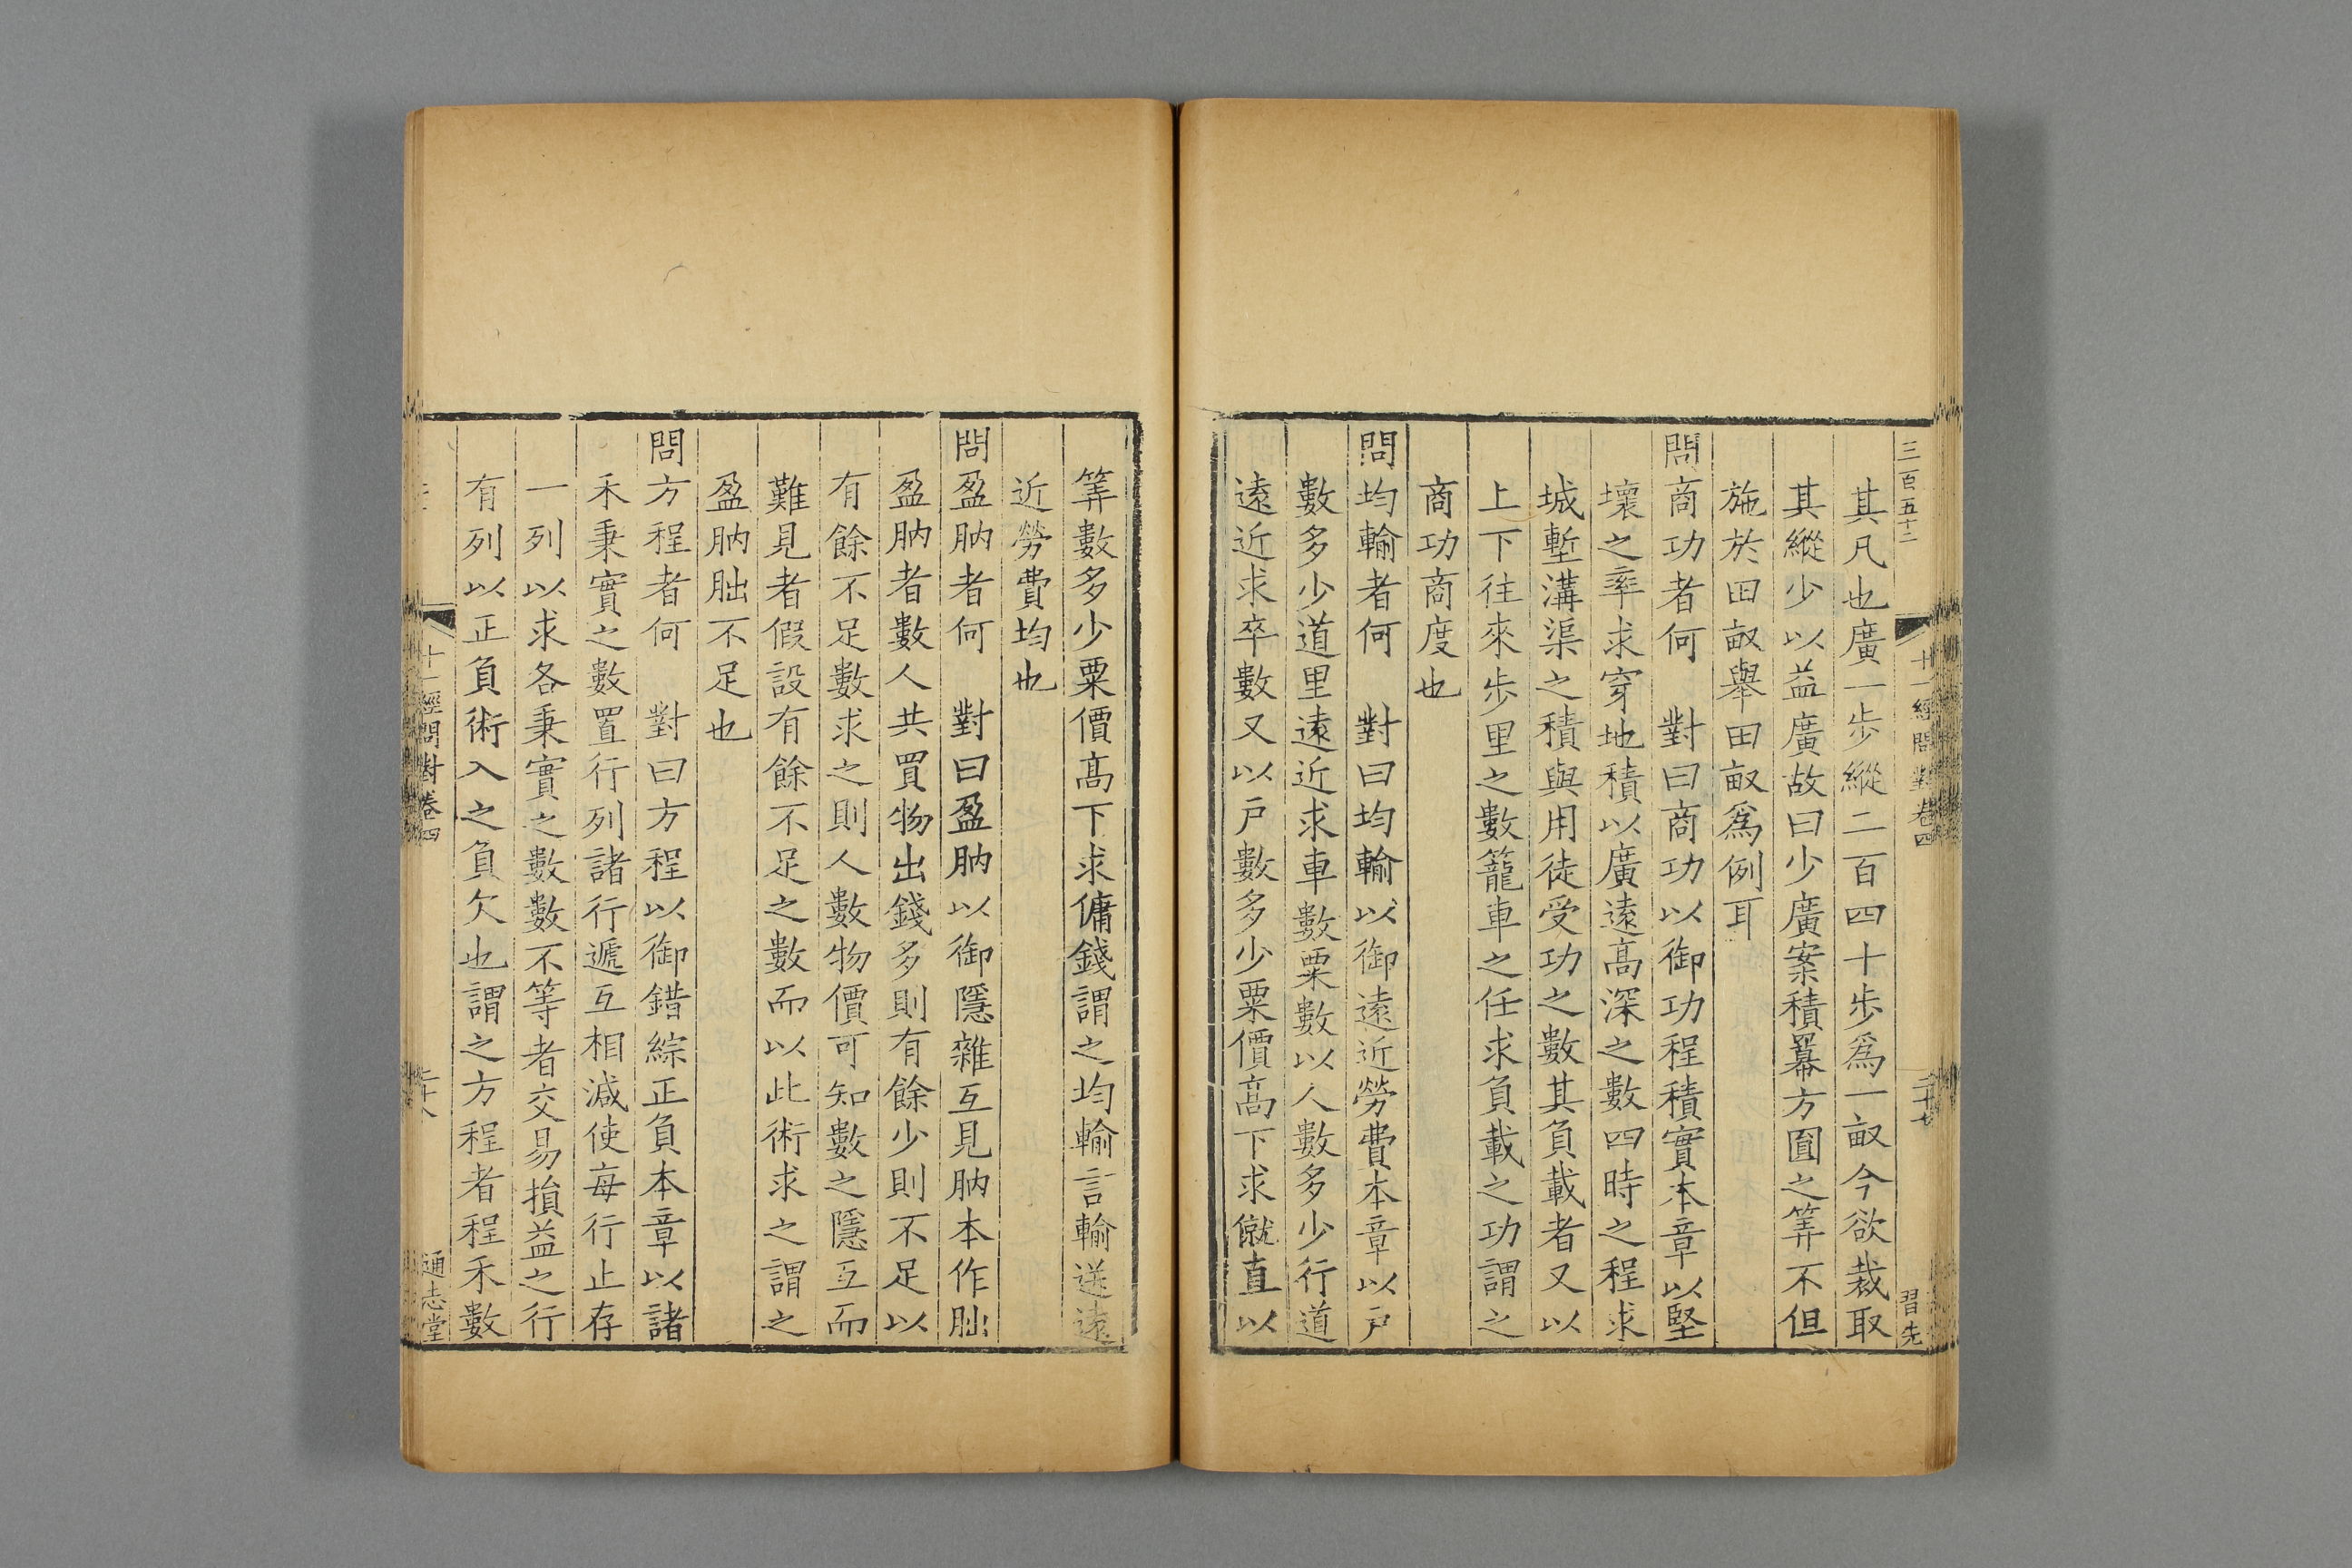 三百五十二
十一經問對卷四
二十七
習先
其凡也廣一歩縱二百四十歩爲一畝今欲裁取
其縱少以益廣故曰少廣案積羃方圓之筭不但
施於田畝舉田畝爲例耳
問商功者何　對曰商功以御功程積實本章以堅
壤之率求穿地積以廣遠髙深之數四時之程求
城塹溝渠之積與用徒受功之數其負載者又以
上下往來歩里之數籠車之任求負載之功謂之
商功商度也
問均輸者何　對曰均輸以御遠近勞費本章以戸
數多少道里遠近求車數粟數以人數多少行道
遠近求卒數又以戸數多少粟價髙下求僦直以
筭數多少粟價髙下求傭錢謂之均輸言輸送遠
近勞費均也
問盈朒者何　對曰盈朒以御隱雜互見朒本作朏
盈朒者數人共買物出錢多則有餘少則不足以
有餘不足數求之則人數物價可知數之隱互而
難見者假設有餘不足之數而以此術求之謂之
盈朒朏不足也
問方程者何　對曰方程以御錯綜正負本章以諸
禾秉實之數置行列諸行遞互相減使每行止存
一列以求各秉實之數數不等者交易損益之行
有列以正負術入之負欠也謂之方程者程禾數
十一經問對卷四
二十八
通志堂